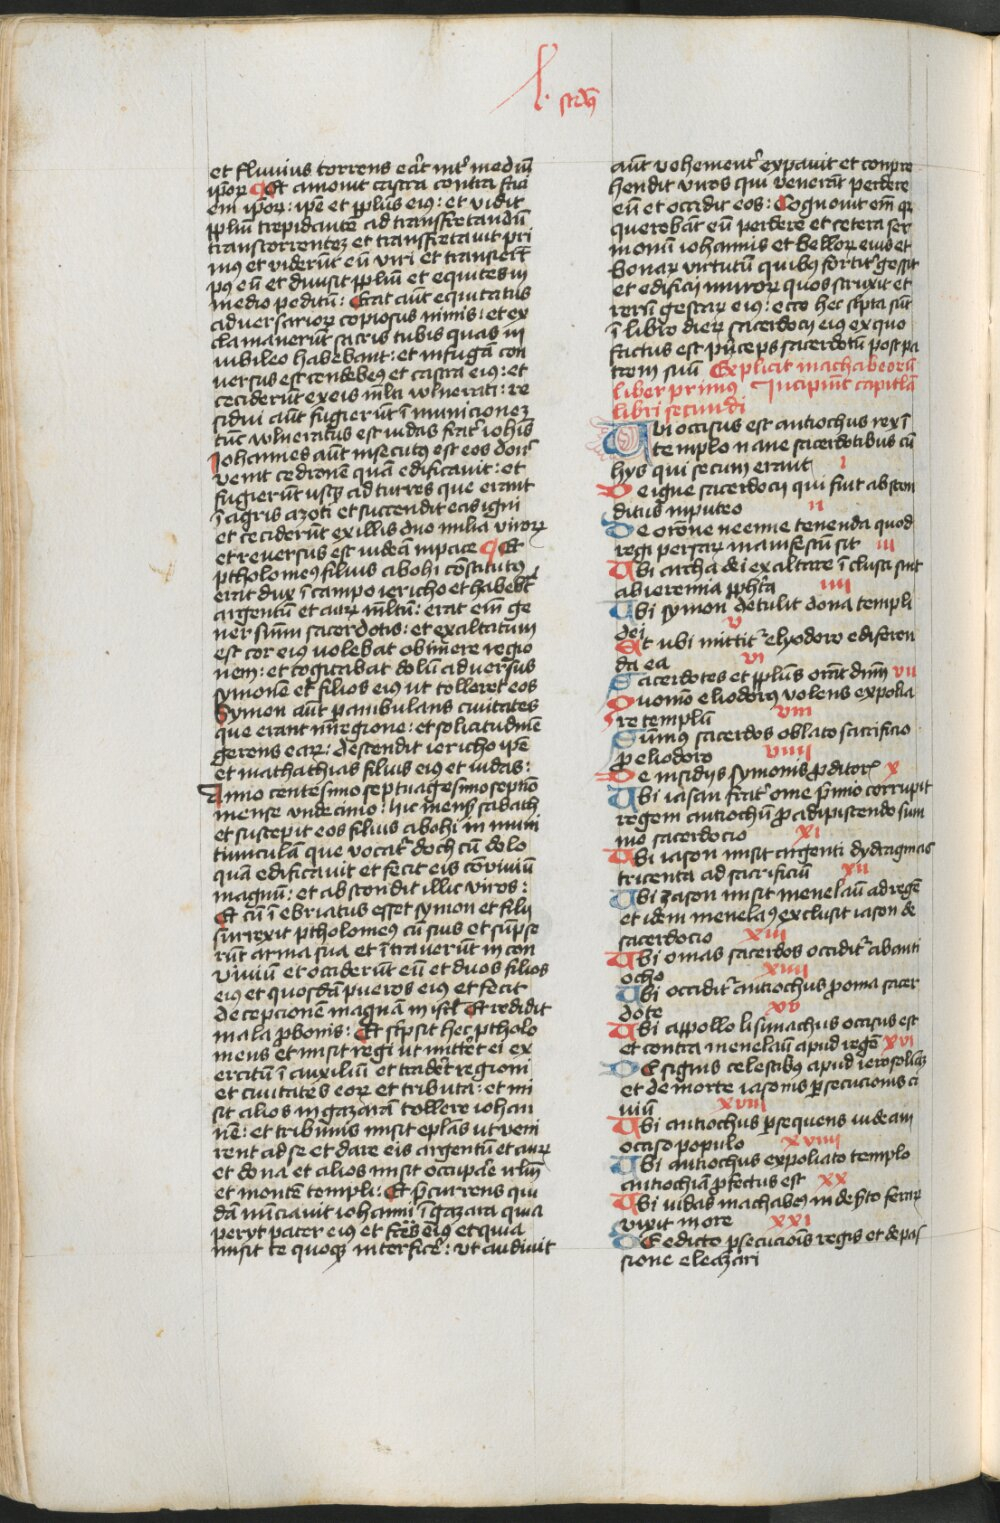 l. scd̄s
et fluvius torrens erāt int̉ mediū
ip̄oꝝ Et amovit castra contra faci
em ip̄oꝝ: ip̄e et pp̄lus eiꝰ: et vidit
pp̄lm̄ trepidantē ad transfretandū
transtorrentez et transfretavit pri
mus et viderūt eū viri et transierūt
pꝰ eū et divisit pp̄lm̄ et equites in
medio peditū: Erat aūt equitatus
adversarioꝝ copiosus nimis: et ex
clamaverūt sacris tubis quas in
iubileo habebant: et in fugā con
versus est cendebeꝰ et castra eiꝰ: et
ceciderūt ex eis ml̄ti vulnerati: re
sidui aūt fugierūt ī municionez
tūc vulneratus est iudas frat̉ ioh̄is
Johannes aūt insecutꝰ est eos don̄
venit cedronē quā edificavit: et
fugierūt usqꝫ ad turres que erant
ī agris azoti et succendit eas igni
et ceciderūt ex illis duo milia viroꝝ
et reversus est iudeā in pace Et
ptholomeꝰ filius abobi cōstitutꝰ
erat dux ī campo iericho et habebt̄
argentū et auꝝ ml̄tū: erat em̄ ge
ner sūmi sacerdotis: et exaltatum
est cor eiꝰ volebat obtinere regio
nem: et cogitabat dolū adversus
symonē et filios eiꝰ ut tolleret eos
Symon aūt pambulans civitates
que erant in regione: et solicitudinē
gerens eaꝝ: descendit iericho ip̄e
et mathathias filius eiꝰ et iudas:
Anno centesimo septuagesimo septīo
mense undecimo: hic mensꝭ sabath
et suscepit eos filius abobi in muni
tiunculā que vocat̉ doch cū dolo
quā edificavit et fecit eis cōvivium
magnū: et abscondit illic viros:
Et cū ī ebriatus esset symon et filii
surrexit ptholomeꝰ cū suis et sūpse
rūt arma sua et ītraverūt in con
viviū et occiderūt eū et duos filios
eiꝰ et quosdā pueros eiꝰ et fecit
decepcionem magnā in isrl̄ Et reddidit
mala ꝓ bonis: Et sc̄psit hec ptholo
meus et misit regi ut mitt̉et ei ex
ercitū ī auxiliū et trad̉et regioni
et civitates eoꝝ et tributa: et mi
sit alios in gazarā tollere iohan
nē: et tribunis misit ep̄las ut veni
rent ad se et dare eis argentū et auꝝ
et dona et alios misit occupare irl̄m
et montē templi: Et p̄currens qui
dā nūciavit iohanni ī gazara quia
peryt pater eiꝰ et fr̄es eiꝰ et quia
misit te quoqꝫ interfic̉: Ut audivit
aūt vehement̉ expavit et compre
hendit viros qui venerāt perdere
eū et occidit eos: Cognovit em̄ qꝛ
querebāt eū perdere et cetera ser
monū iohannis et belloꝝ eius et
bonaꝝ virtutū quibꝰ fortit̉ gessit
et edificii muroꝝ quos struxit et
rerū gestaꝝ eiꝰ: ecce hec sc̄pta sūt
ī libro dieꝝ sacerdocii eiꝰ ex quo
factus est p̄nceps sacerdotū post pa
trem suū Explicit machabeorū
liber primꝰ Incipiūt capitl̄a
libri secundi
Ubi occisus est antiochus rex ī
templo nanee sacerdotibus cū
hys qui secum erant i
De igne sacerdocii qui fuit abscon
ditus in puteo ii
De orōne neemie tenenda quod
regi persaꝝ manifestū sit iii
Ubi archa dei et altare ī clusa sūt
ab ieremia pp̄h̄a iiii
Ubi symon detulit dona templi
dei v
Et ubi mittit̉ elyodoro ediferen
da ea vi
Sacerdotes et pp̄lus orāt dn̄m vii
Quomō eliodorꝰ volens expolia
re templū viii
Sūmus sacerdos oblato sacrificio
p eliodoro viiii
De insidiis symonis ꝓditorꝭ x
Ubi iasan frat̉ onie p̄mio corrupit
regem antiochū ꝓ adipiscendo sum
mo sacerdocio xi
Ubi iason misit argenti dydragmas
tricenta ad sacrificiū xii
Ubi zason misit menelaū ad regē
et idem menelaꝰ exclusit iason de
sacerdocio xiii
Ubi omas sacerdos occidit̉ ab anti
ocho xiiii
Ubi occidit̉ antiochus ꝓ oma sacer
dote xv
Ubi appollo lisimachus occisus est
et contra menelaū apud regē xvi
De signis celestibꝰ apud ierosolimā
et de morte iasonis p̄secucionis ci
viū xviii
Ubi antiochus p̄sequens iudeam
occiso populo xviiii
Ubi antiochus expoliato templo
antiochiā ꝓfectus est xx
Ubi iudas machabeꝰ in deserto feraꝝ
vixit more xxi
De edicto p̄secucionis regis et de pas
sione eleazari